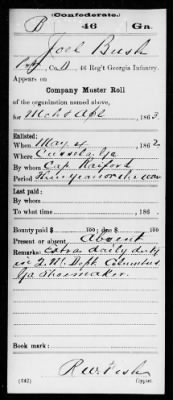 (Confederate.)
B 46 Ga.
Joel Bush
Pvt, Co. D, 46 Reg't Georgia Infantry.
Appears on
Company Muster Roll
of the organization named above,
for Mch & Apl, 1863
Enlisted:
When May 4, 1862
Where Cusseta, Ga
By whom Cap Raiford
Period Three years or the war
Last paid:
By whom
To what time , 186 .
Bounty paid $ 100; due $ 100
Present or absent Absent
Remarks: extra daily duty
in Q.M. Dept Columbus
Ga Shoemaker.
Book mark:
(642) Copyist.